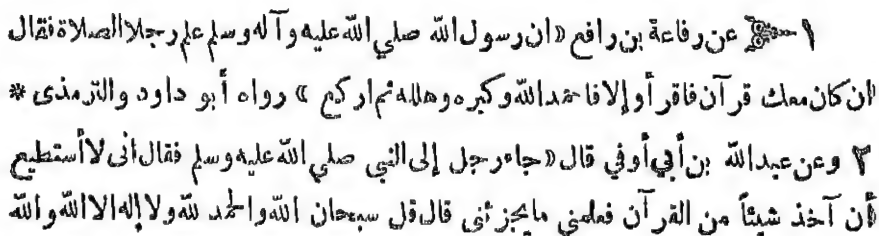 ١ عن رفاعة بن رافع «ان رسول الله صلي الله عليه وآله وسلم علم رجلا الصلاة فقال
ان كان معك قرآن فاقرأ وإلا فاحمد الله وكبره وهلله ثم اركع» رواه أبو داود والترمذى *
٢ وعن عبد الله بن أبي أوفي قال «جاء رجل إلى النبي صلي الله عليه وسلم فقال أنى لا أستطيع
أن آخذ شيئاً من القرآن فعلمني ما يجزئنى قال قل سبحان الله والحمد لله ولا إله الا الله والله